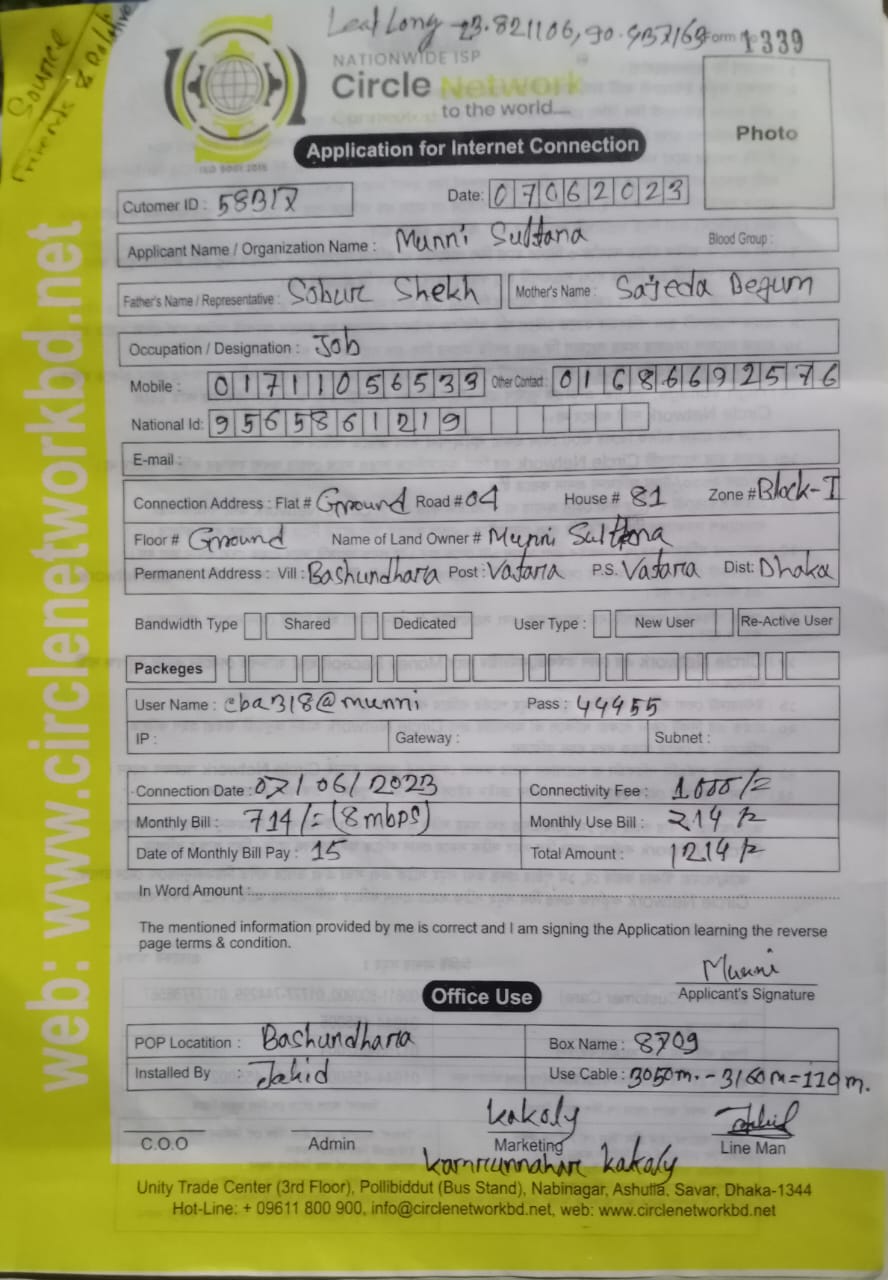 Source
Friends & Relative
Leat Long - 23.821106, 90.437169
Form 1339
NATIONWIDE ISP
Circle Network
to the world....
ISO 9001:2015
Photo
Application for Internet Connection
Cutomer ID : 58317 Date: 07062023
Applicant Name / Organization Name : Munni Sultana Blood Group :
Father's Name / Representative : Sobur Shekh Mother's Name : Sajeda Begum
Occupation / Designation : Job
Mobile : 01711056533 Other Contact : 01686692576
National Id: 9565861219
E-mail :
Connection Address : Flat # Ground Road # 04 House # 81 Zone # Block-I
Floor # Ground Name of Land Owner # Munni Sultana
Permanent Address : Vill : Bashundhara Post : Vatara P.S. Vatara Dist: Dhaka
Bandwidth Type Shared Dedicated User Type : New User Re-Active User
Packeges
User Name : cba318@munni Pass : 44955
IP : Gateway : Subnet :
Connection Date : 07/06/2023 Connectivity Fee : 1000/=
Monthly Bill : 714/= (8 mbps) Monthly Use Bill : 214/=
Date of Monthly Bill Pay : 15 Total Amount : 1214/=
In Word Amount :
The mentioned information provided by me is correct and I am signing the Application learning the reverse
page terms & condition.
Munni
Applicant's Signature
Office Use
POP Locatition : Bashundhara Box Name : 8709
Installed By : Jahid Use Cable : 3050m. - 3160m = 110m.
kakoly Jahid
C.O.O Admin Marketing Line Man
kamrunnahar kakoly
Unity Trade Center (3rd Floor), Pollibiddut (Bus Stand), Nabinagar, Ashulia, Savar, Dhaka-1344
Hot-Line: + 09611 800 900, info@circlenetworkbd.net, web: www.circlenetworkbd.net
web: www.circlenetworkbd.net